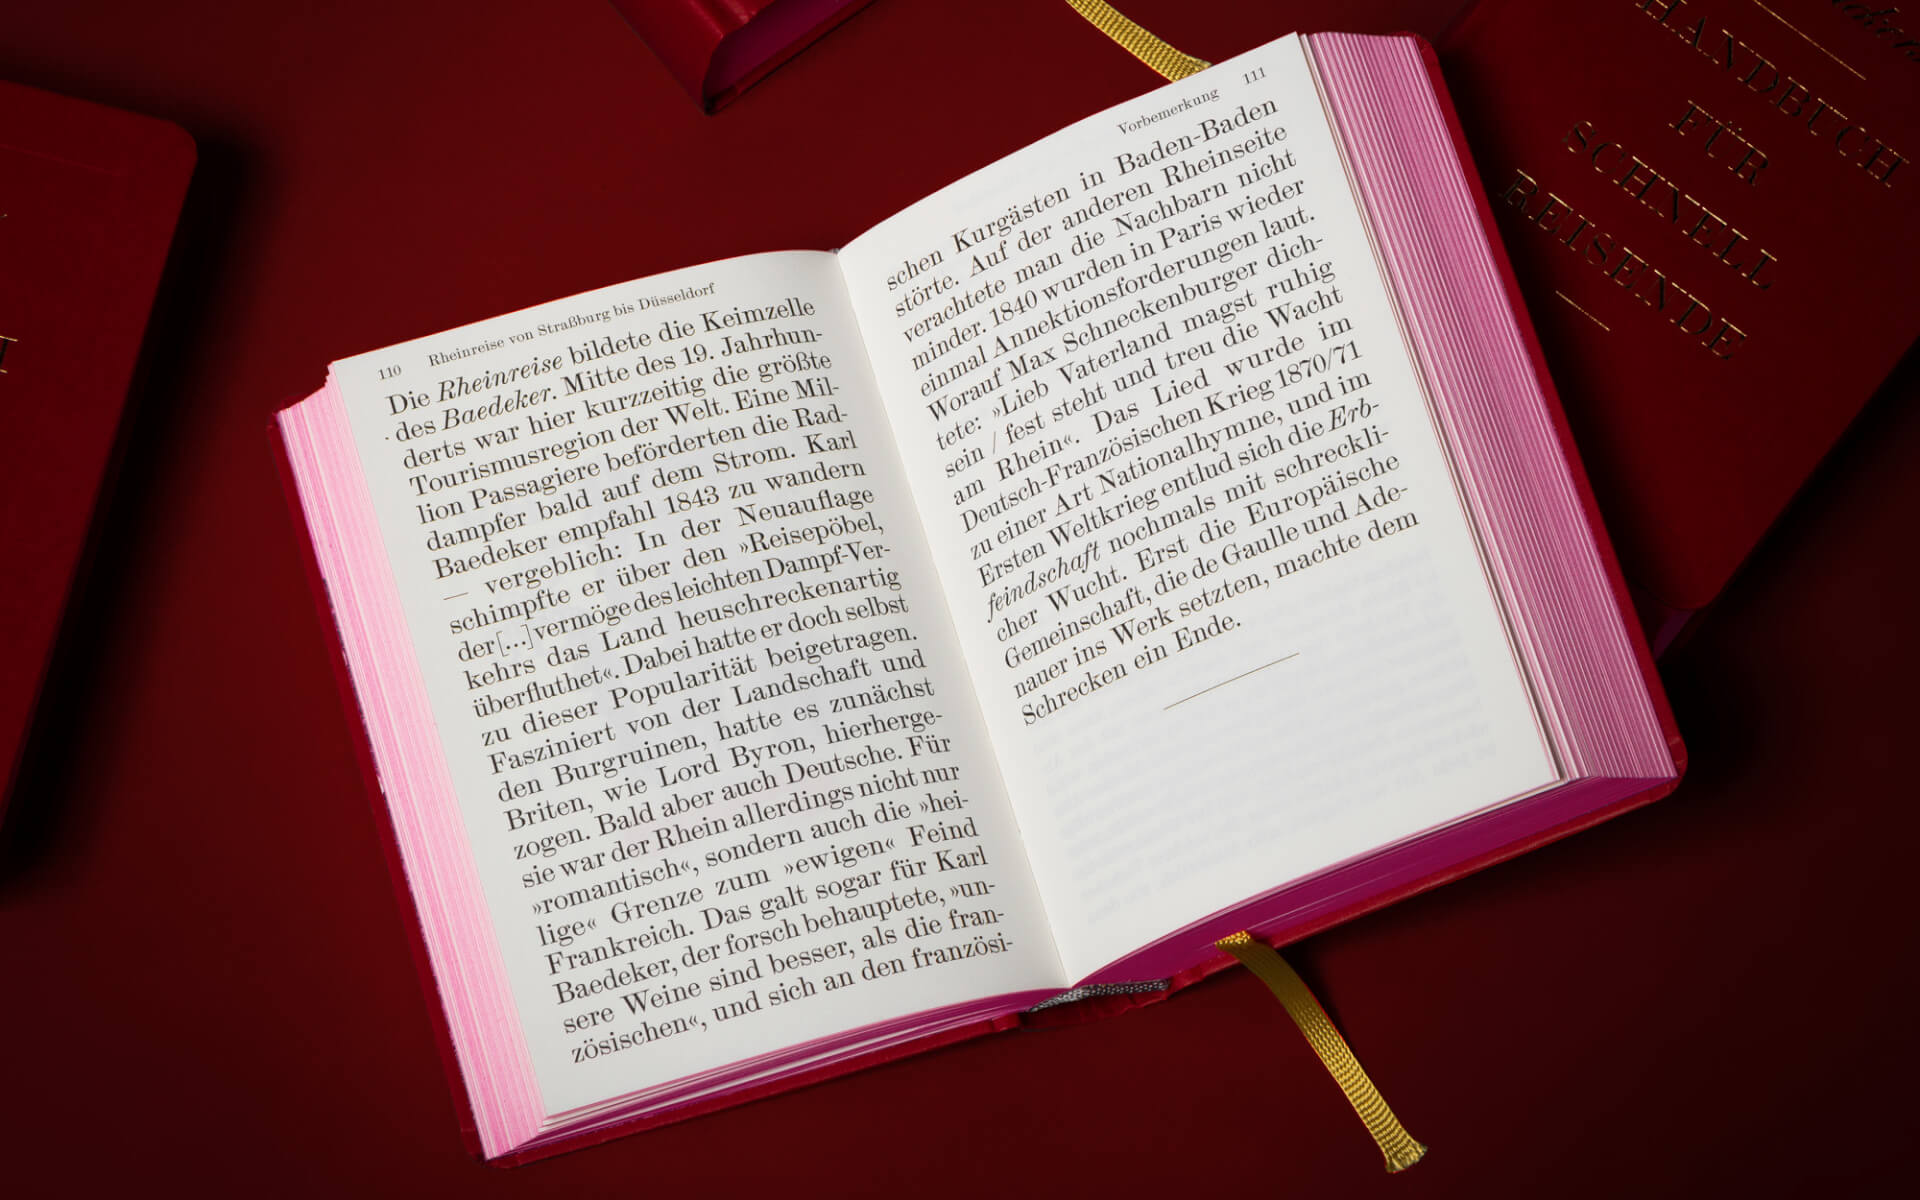 110 Rheinreise von Straßburg bis Düsseldorf
Die Rheinreise bildete die Keimzelle
des Baedeker. Mitte des 19. Jahrhun-
derts war hier kurzzeitig die größte
Tourismusregion der Welt. Eine Mil-
lion Passagiere beförderten die Rad-
dampfer bald auf dem Strom. Karl
Baedeker empfahl 1843 zu wandern
— vergeblich: In der Neuauflage
schimpfte er über den »Reisepöbel,
der [...] vermöge des leichten Dampf-Ver-
kehrs das Land heuschreckenartig
überfluthet«. Dabei hatte er doch selbst
zu dieser Popularität beigetragen.
Fasziniert von der Landschaft und
den Burgruinen, hatte es zunächst
Briten, wie Lord Byron, hierherge-
zogen. Bald aber auch Deutsche. Für
sie war der Rhein allerdings nicht nur
»romantisch«, sondern auch die »hei-
lige« Grenze zum »ewigen« Feind
Frankreich. Das galt sogar für Karl
Baedeker, der forsch behauptete, »un-
sere Weine sind besser, als die fran-
zösischen«, und sich an den französi-
Vorbemerkung 111
schen Kurgästen in Baden-Baden
störte. Auf der anderen Rheinseite
verachtete man die Nachbarn nicht
minder. 1840 wurden in Paris wieder
einmal Annektionsforderungen laut.
Worauf Max Schneckenburger dich-
tete: »Lieb Vaterland magst ruhig
sein / fest steht und treu die Wacht
am Rhein«. Das Lied wurde im
Deutsch-Französischen Krieg 1870/71
zu einer Art Nationalhymne, und im
Ersten Weltkrieg entlud sich die Erb-
feindschaft nochmals mit schreckli-
cher Wucht. Erst die Europäische
Gemeinschaft, die de Gaulle und Ade-
nauer ins Werk setzten, machte dem
Schrecken ein Ende.
HANDBUCH
FÜR
SCHNELL
REISENDE